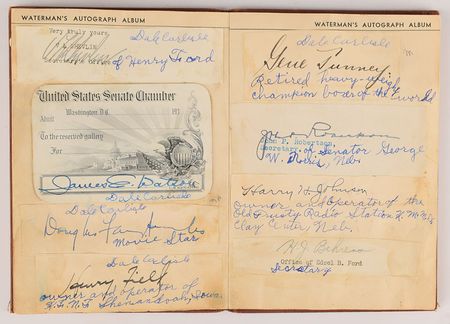 WATERMAN'S AUTOGRAPH ALBUM
Very truly yours,
Dale Carlisle
Secretary's Office of Henry Ford
United States Senate Chamber
Washington, D.C.
Admit
To the reserved gallery
For
James E. Watson
Dale Carlisle
Dale Carlisle
Douglas Fairbanks
Movie Star
Dale Carlisle
Henry Field
owner and operator of
K.F.N.F Shenandoah, Iowa.
WATERMAN'S AUTOGRAPH ALBUM
Dale Carlisle
Gene Tunney
Retired heavy-weigh
champion boxer of the world
John P. Robertson,
Secretary of Senator George
W. Norris, Neb.
Harry H Johnson
owner and operator of the
Old Trusty Radio Station K.M.M.J.
Clay Center, Neb.
Office of Edsel B. Ford
Secretary